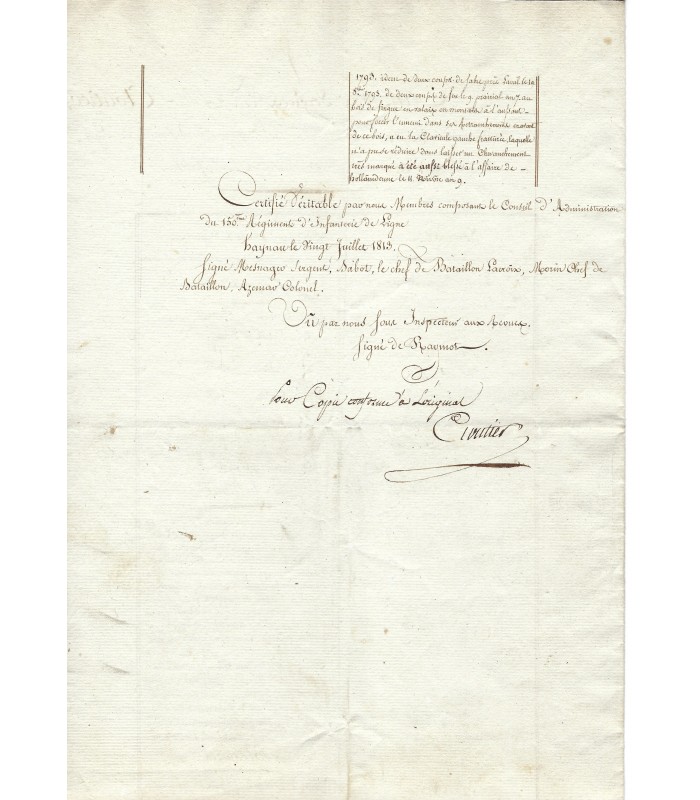 1793. idem de deux coups de sabre près Laval le 18
8bre 1793. de deux coups de feu le 9. prairial an 7. au
bois de frique en ratais en montate à l'assaut
pour forcer l'ennemi dans ses Retranchements en avant
de ce bois, a eu la Clavicule gauche fracturée, laquelle
n'a pu se réduire sans laisser un Chevauchement
très marqué a été aussi blessé à l'affaire de
hollandenne le 11. Nivôse an 9.
Certifié Véritable par nous Membres composant le Conseil d'Administration
du 153.me Régiment d'Infanterie de Ligne
haynau le Vingt Juillet 1813.
Signé Mesnager Sergent, Nabot, le chef de Bataillon Lacroix, Morin Chef de
Bataillon, Azemar Colonel.
Vu par nous Sous Inspecteur aux Revues.
Signé de Raymot.
Pour Copie conforme à L'original
Cloutier